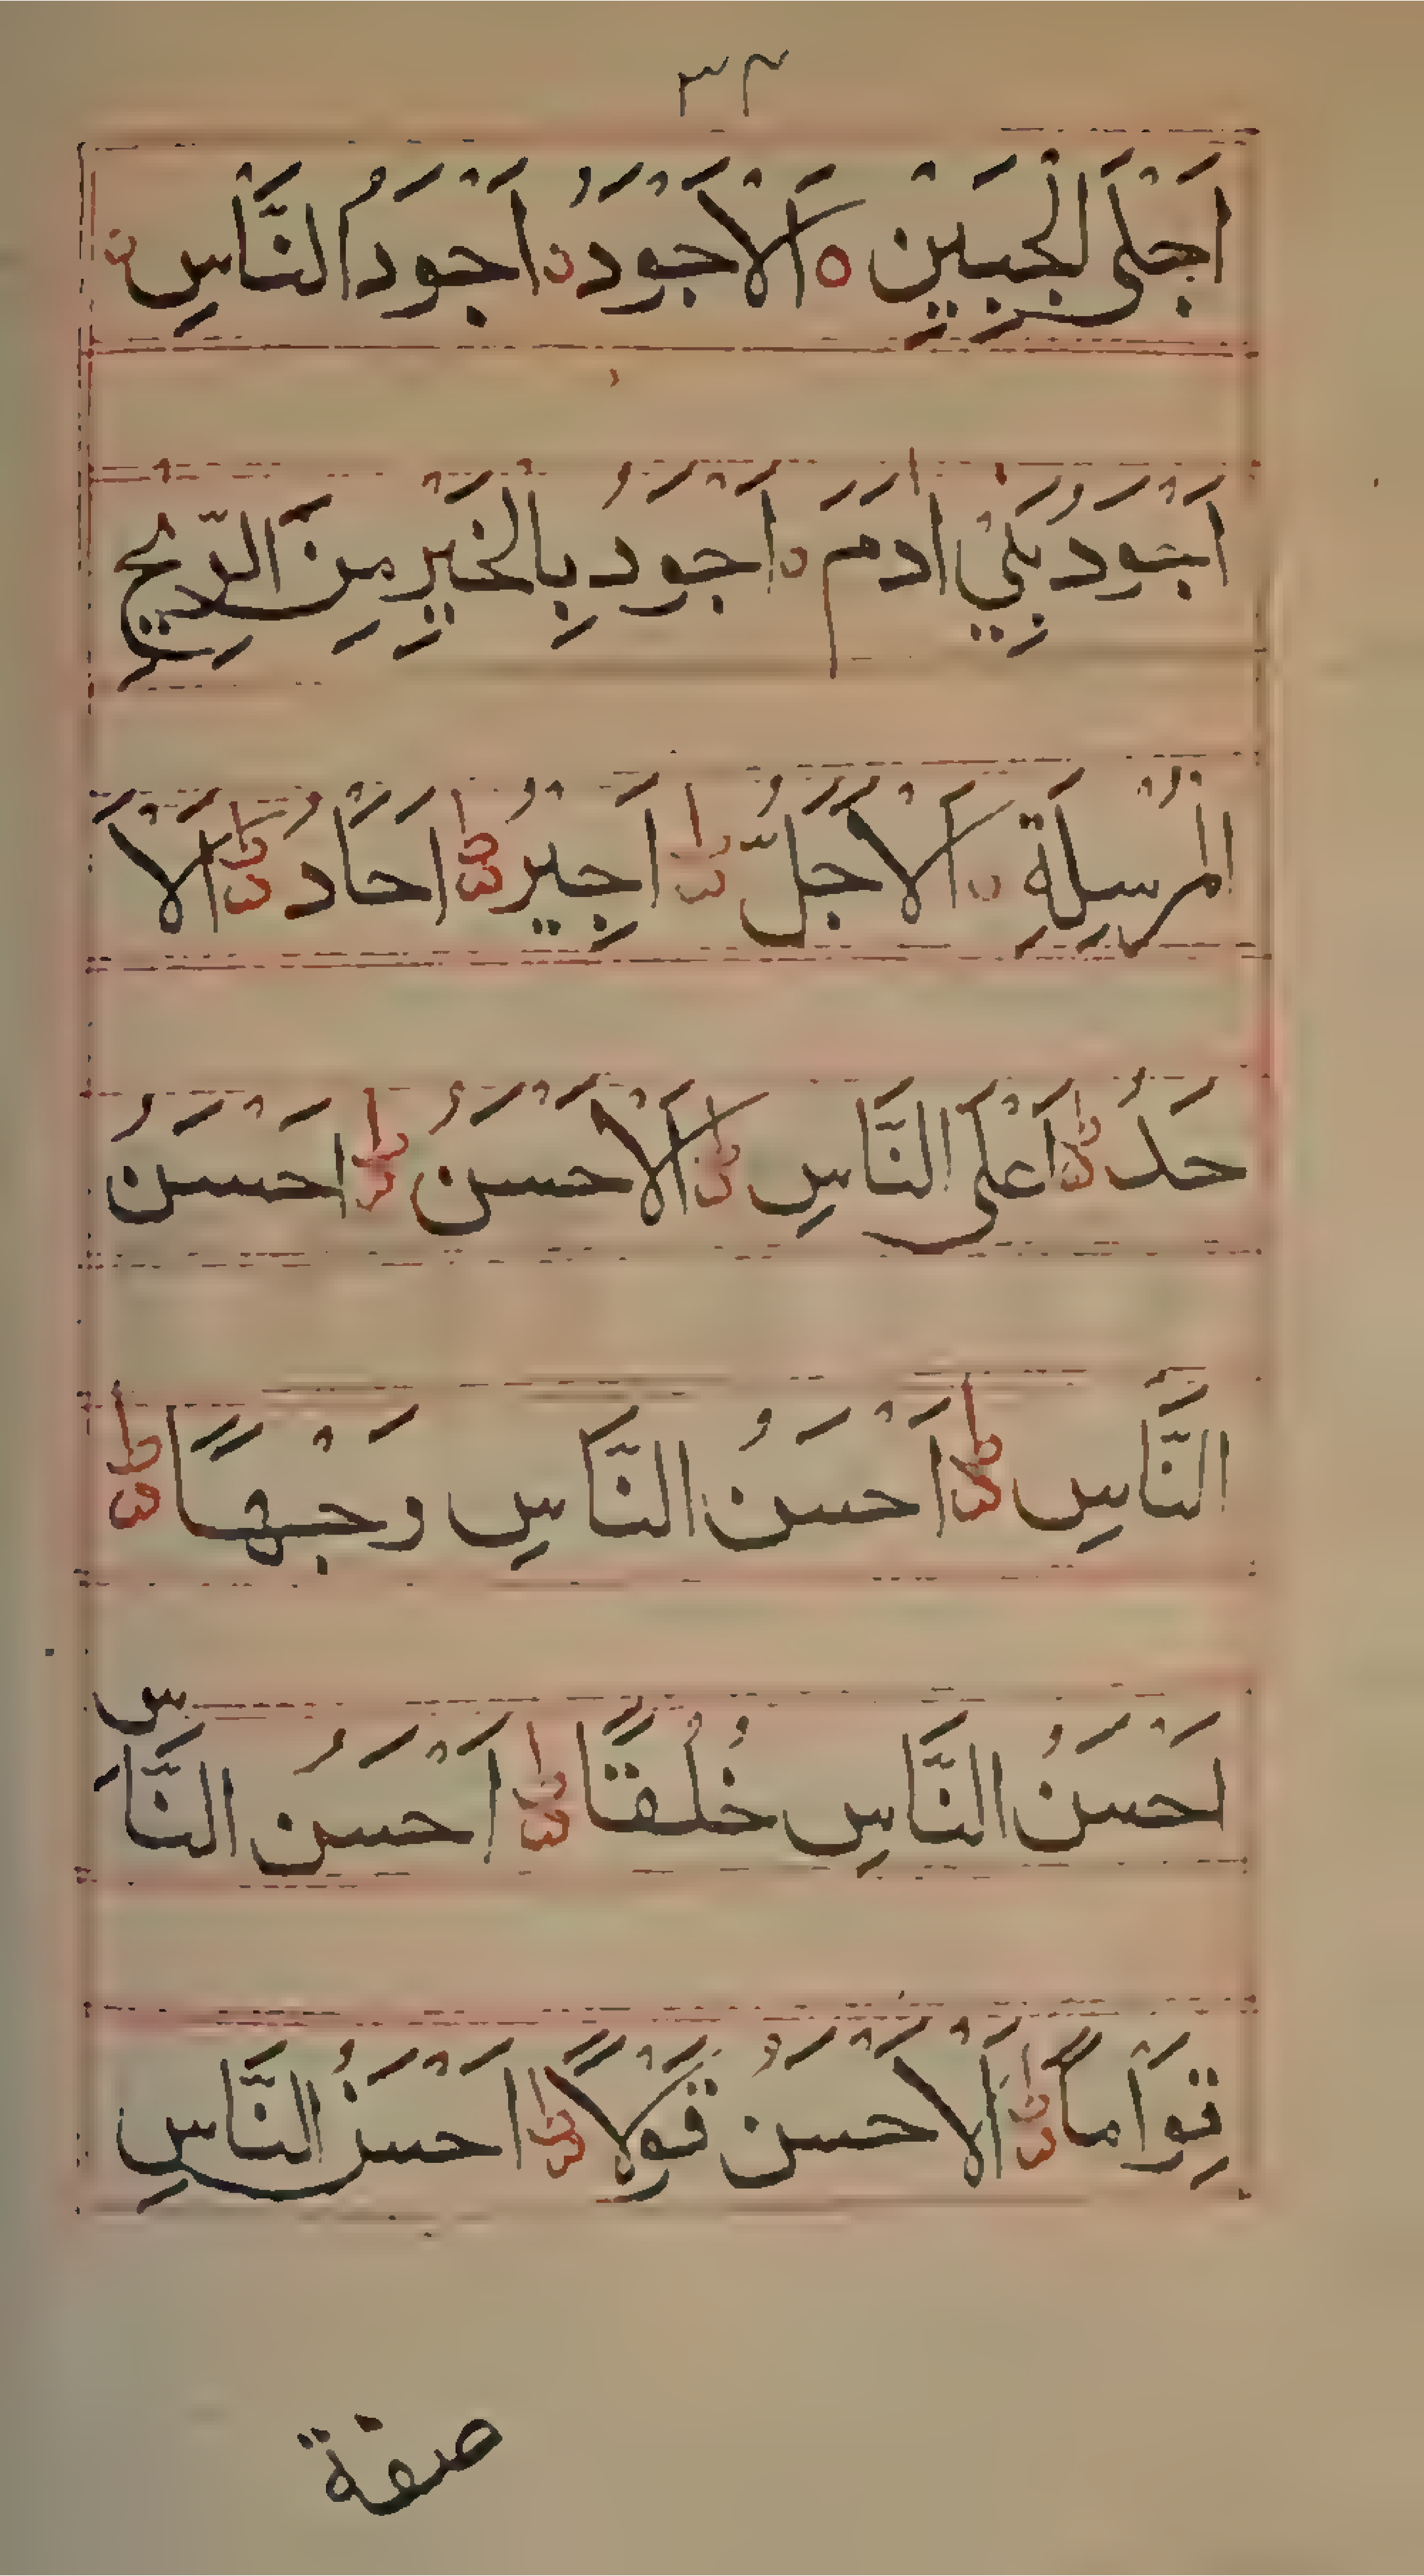 ٣٤
اَجْلَى الْجَبِيْنِ ه اَلْاَجْوَدُ اَجْوَدُ النَّاسِ
اَجْوَدُ بَنِيْ اٰدَمَ اَجْوَدُ بِالْخَيْرِ مِنَ الرِّيْحِ
الْمُرْسِلَةِ اَلْاَجَلُّ اَجِيْرُ اَحَادُ اَلْاَ
حَدُ اَعْلَى النَّاسِ اَلْاَحْسَنُ اَحْسَنُ
النَّاسِ اَحْسَنُ النَّاسِ وَجْهًا
اَحْسَنُ النَّاسِ خُلُقًا اَحْسَنُ النَّاسِ
قِوَامًا اَلْاَحْسَنُ قَوْلًا اَحْسَنُ النَّاسِ
صفة